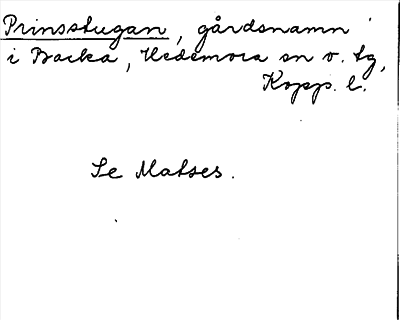 Prinsstugan, gårdsnamn
i Backa, Hedemora sn o. tg,
Kopp. l.
Se Matses.